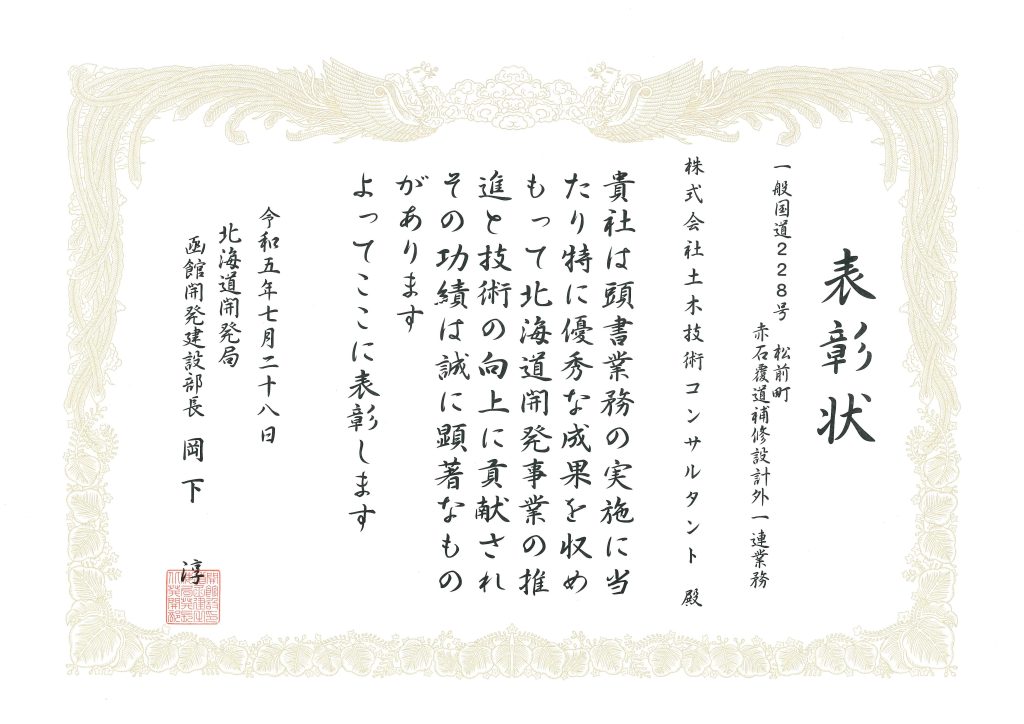 表彰状
一般国道２２８号　松前町
赤石覆道補修設計外一連業務
株式会社土木技術コンサルタント　殿
貴社は頭書業務の実施に当
たり特に優秀な成果を収め
もって北海道開発事業の推
進と技術の向上に貢献され
その功績は誠に顕著なもの
があります
よってここに表彰します
令和五年七月二十八日
北海道開発局
函館開発建設部長　岡下　淳